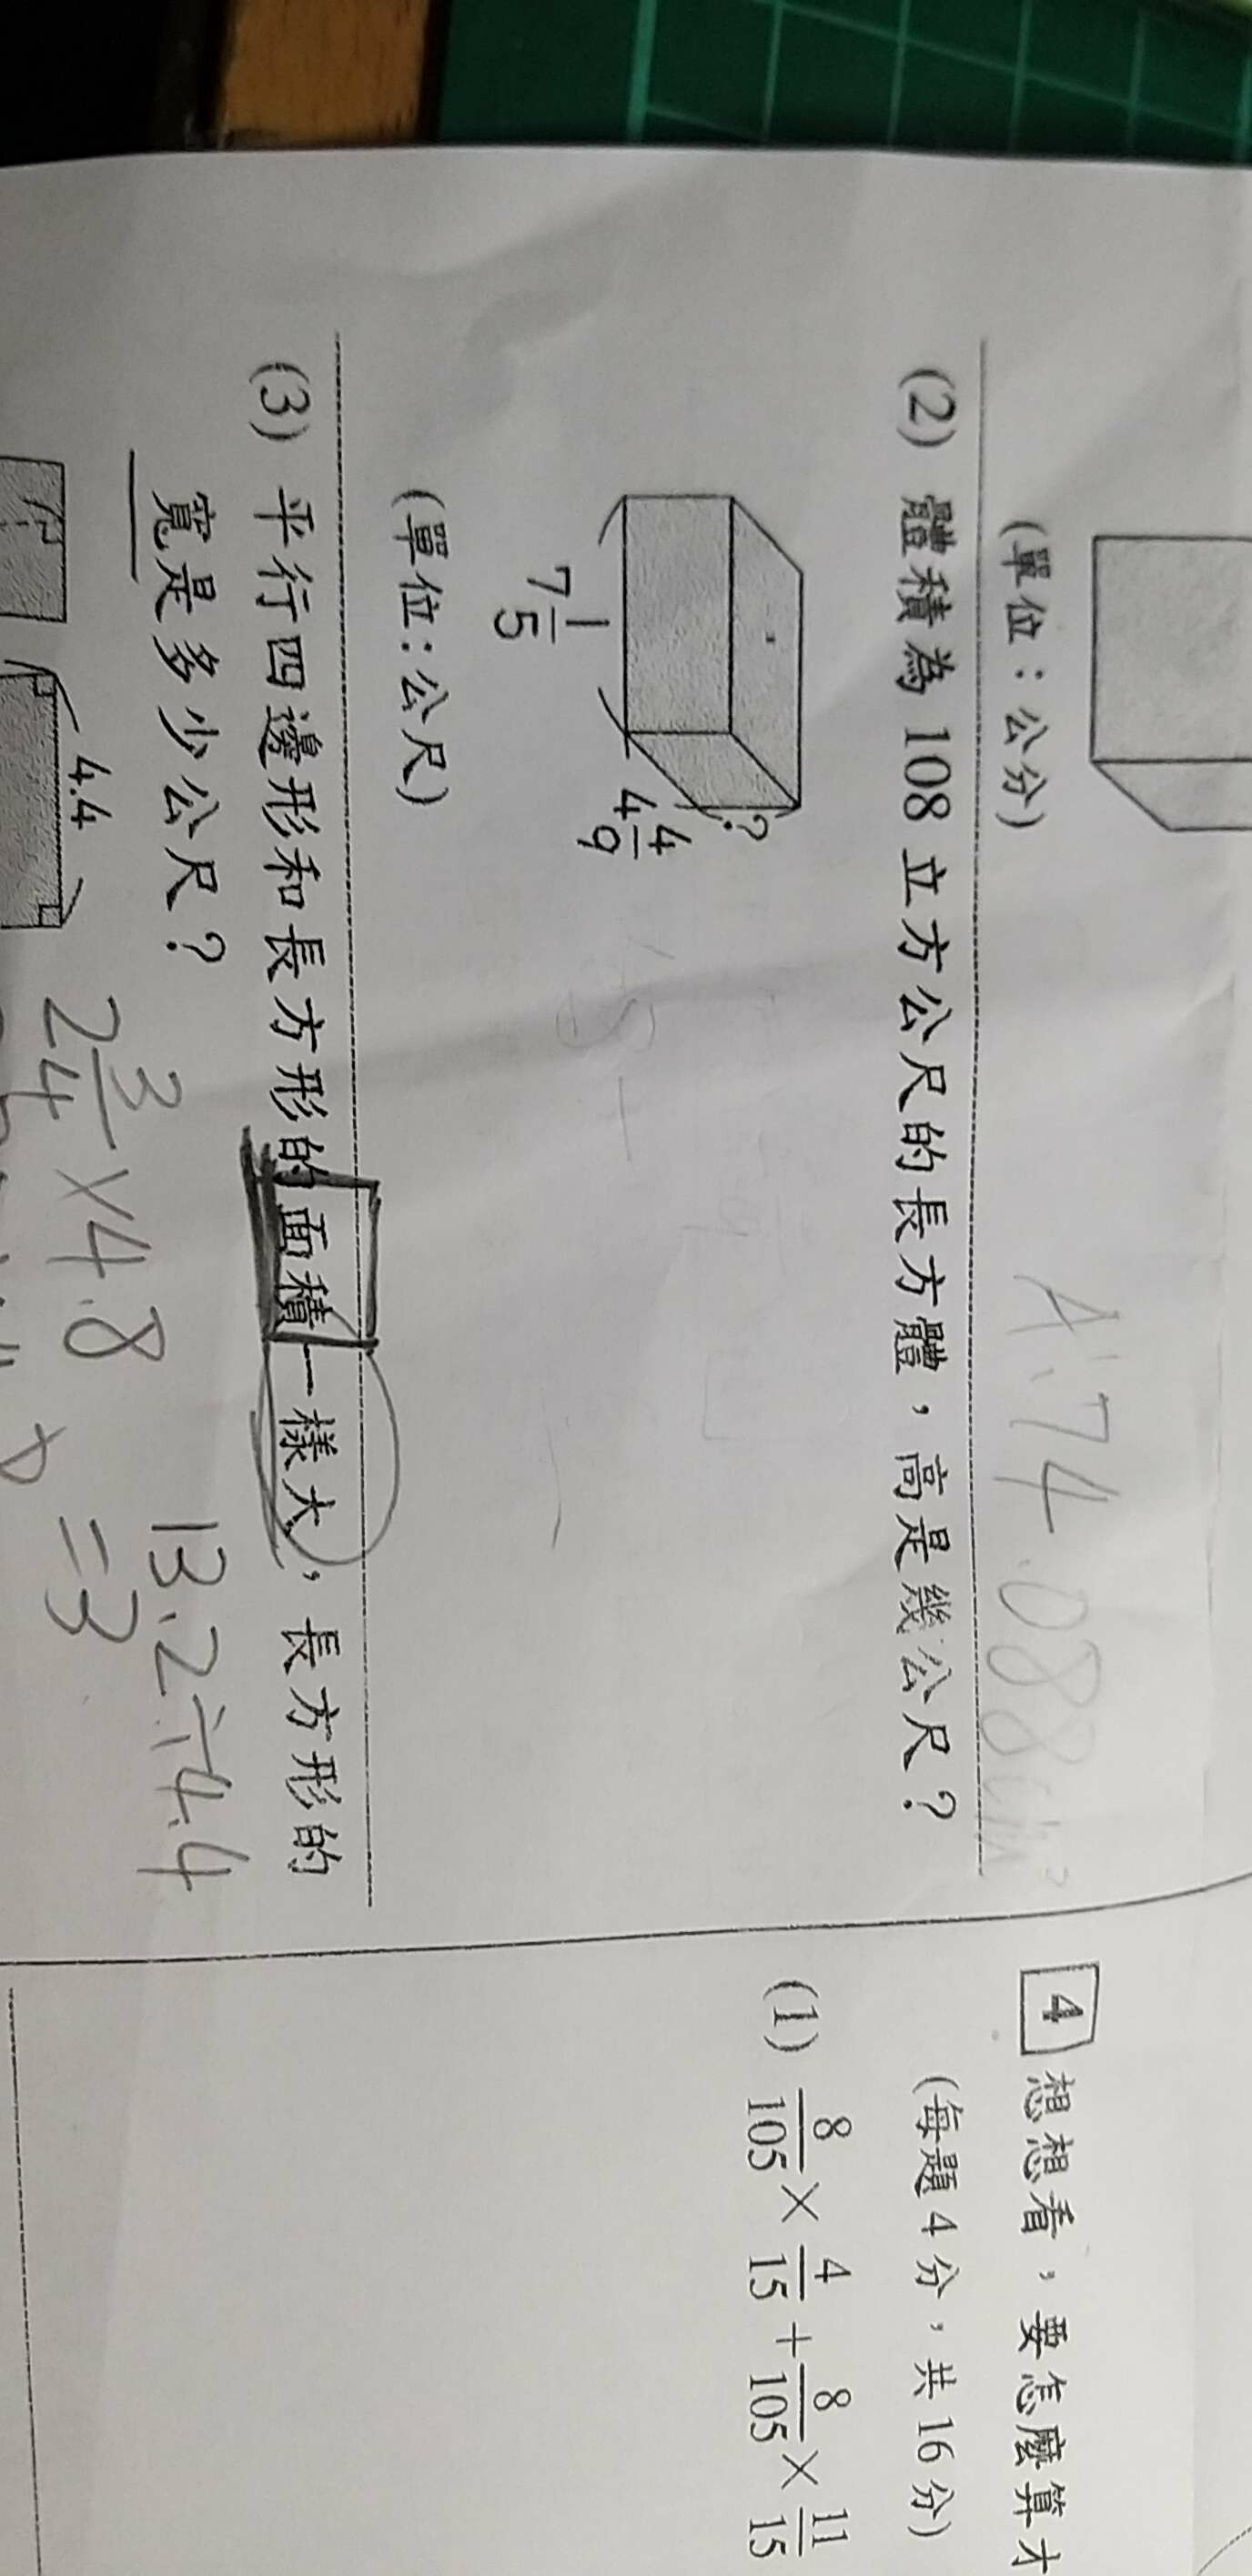 (單位：公分)
A:74.088cm³
(2) 體積為 108 立方公尺的長方體，高是幾公尺？
?
4 4/9
7 1/5
(單位：公尺)
(3) 平行四邊形和長方形的面積一樣大，長方形的
寬是多少公尺？
13.2÷4.4
2 3/4 ×4.8
=3
4.4
4 想想看，要怎麼算才
(每題 4 分，共 16 分)
(1) 8/105 × 4/15 + 8/105 × 11/15